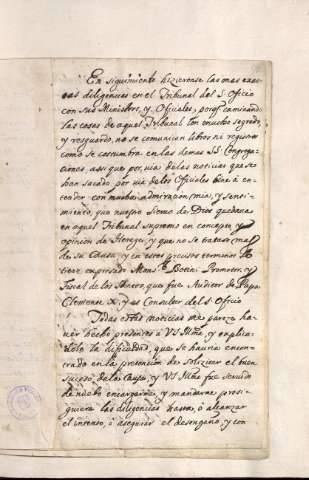 En siguimiento hizieronse las mas exac-
tas diligencias en el Tribunal del S. Oficio
con sus Ministros, y Oficiales, porq caminando
las cosas de aquel Tribunal con mucho segredo,
y resguardo, no se comunican libros ni registros
como se costumbra en las demas SS. Congrega-
ciones, assi que por via de las noticias que se
han sacado por via de los Oficiales bine à en-
tender con mucha admiracion mia, y senti-
miento, que nuestro Siervo de Dios quedava
en aquel Tribunal supremo en concepto y
opinion de Herege, y que no se tratava mal
de su Causa, y en estos precisos terminos lo
tiene expresado Mons.r Botia Promotor, y
Fiscal de los Santos, que fue Auditor de Papa
Clemente X, y es Consultor del S. Oficio
Todas estas noticias me pareze ha-
ver hecho presentes à VS Illma, y explica-
dole la dificultad, que se havia encon-
trado en la pretencion de solicitar el buen
suceso de las Causas, y VS Illma fue servido
de nuebo encargarme, y mandarme prosi-
guiera las diligencias hasta, ò alcanzar
el intento, ò asegurar el desengaño, y con